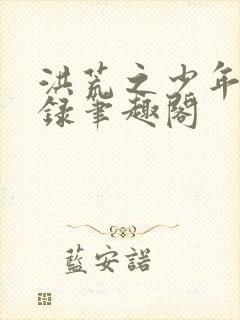 洪荒之少年
錄筆趣閣
藍安諾